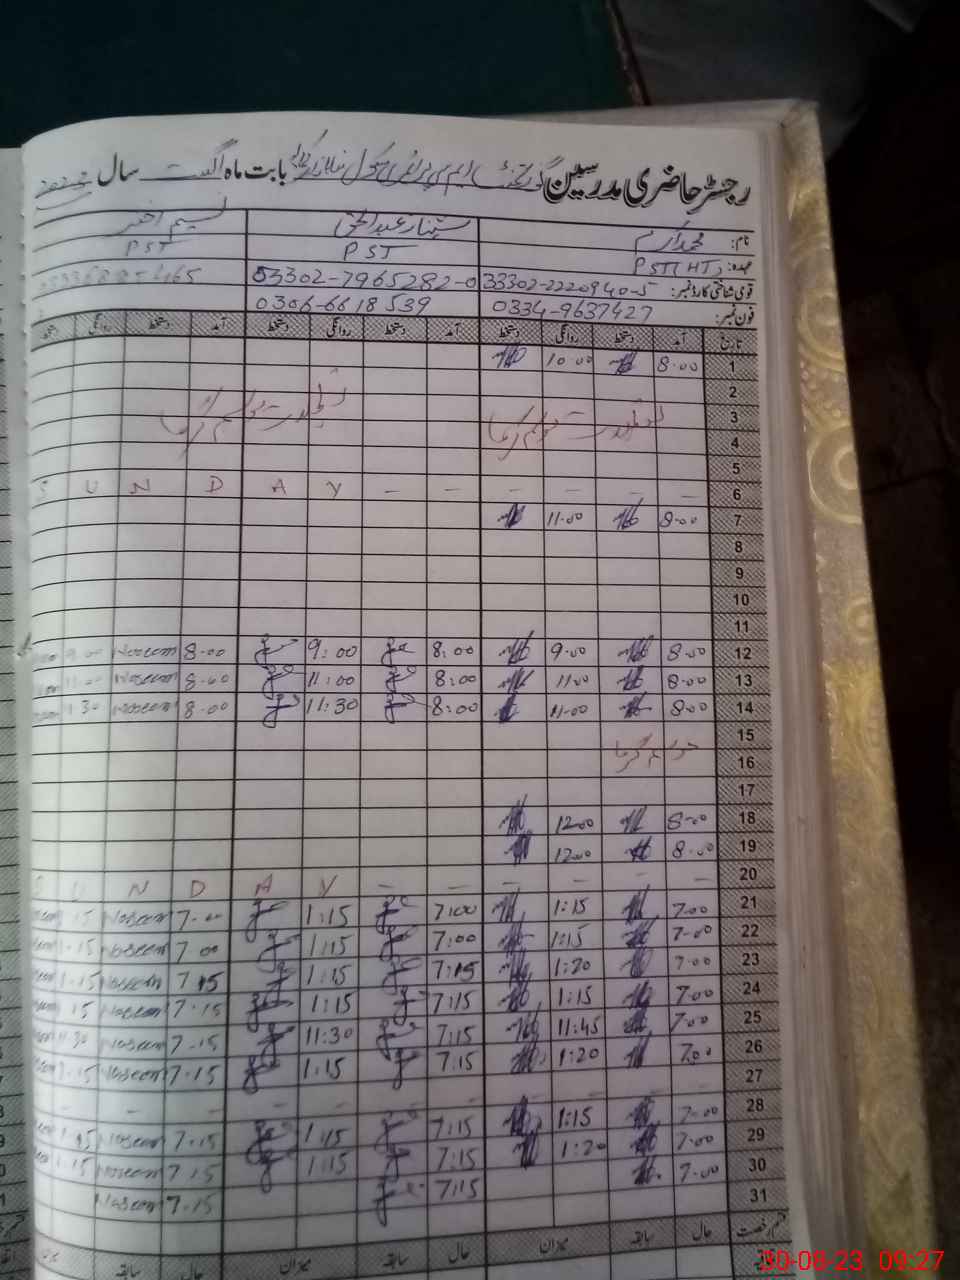 رجسٹر حاضری مدرسین گورنمنٹ ایم سی پرائمری سکول بابت ماہ اگست سال 2023
نام: محمد اکرم ستار عبدالحق نسیم اختر
عہدہ: PST(HT) PST PST
قومی شناختی کارڈ نمبر: 33302-2220940-5 33302-7965282-0
فون نمبر: 0334-9637427 0306-6618539
تاریخ آمد دستخط روانگی دستخط آمد دستخط روانگی دستخط آمد دستخط روانگی دستخط
1 8.00 10.00
2
3 تعطیلات موسم گرما تعطیلات موسم گرما
4
5
6 - - - - - - Y A D N U S
7 8.00 11.00
8
9
10
11
12 8.00 9.00 8:00 9:00 8.00 Naseem 9.00
13 8.00 11.00 8:00 11:00 8.00 Naseem 11.00
14 8.00 11.00 8:00 11:30 8.00 Naseem 11.30
15 موسم گرما
16
17
18 8.00 12.00
19 8.00 12.00
20 - - - - - - Y A D N U S
21 7.00 1:15 7:00 1:15 7.00 Naseem 1.15
22 7.00 1:15 7:00 1:15 7.00 Naseem 1.15
23 7.00 1:20 7:15 1:15 7.15 Naseem 1.15
24 7.00 1:15 7:15 1:15 7.15 Naseem 1.15
25 7.00 11:45 7:15 11:30 7.15 Naseem 11.30
26 7.00 1:20 7:15 1:15 7.15 Naseem 1.15
27 - - - -
28 7.00 1:15 7:15 1:15 7.15 Naseem 1.15
29 7.00 1:20 7:15 1:15 7.15 Naseem 1.15
30 7.00 7:15 7.15 Naseem
31
قسم رخصت حال سابقہ میزان حال سابقہ میزان حال سابقہ
30-08-23 09:27